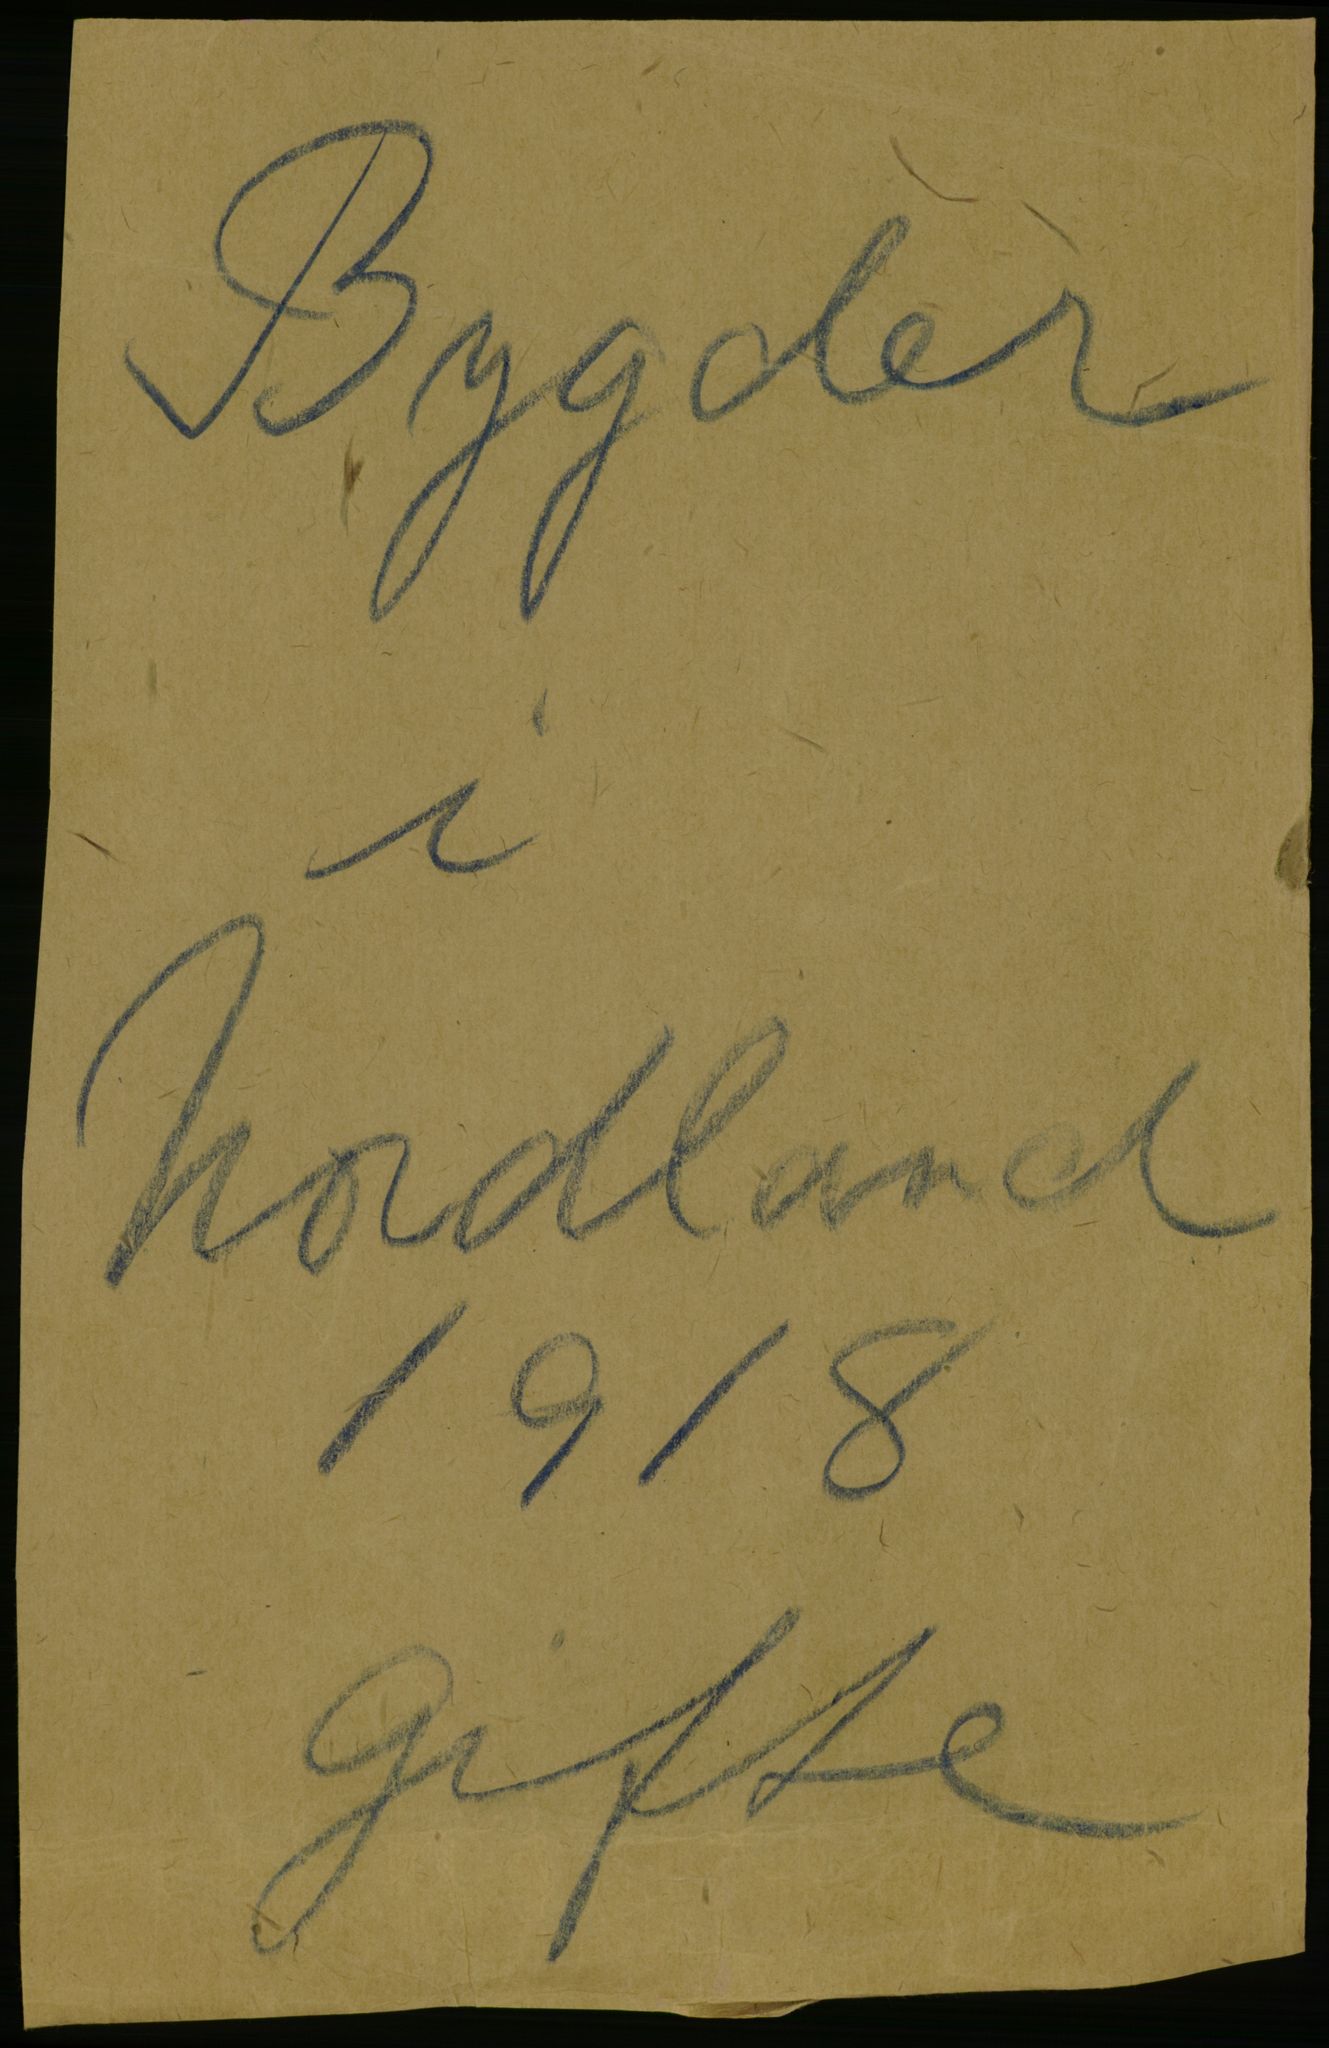 Bygder
i
Nordland
1918
gifte